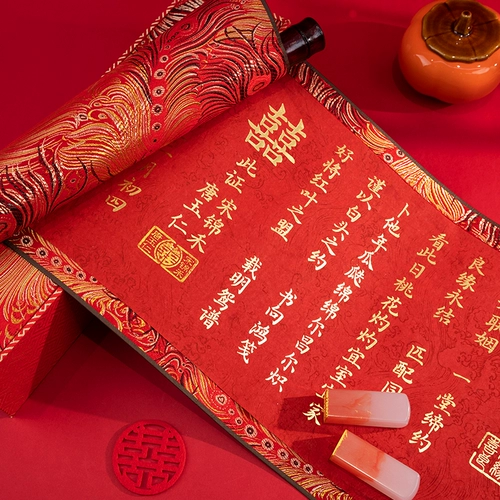 姻 一堂缔约
良缘永结 匹配同
看此日桃花灼灼宜室宜家
卜他年瓜瓞绵绵尔昌尔炽
谨以白头之约 书向鸿笺
好将红叶之盟 载明鸳谱
囍
此证 宋锦木
唐玉仁
月初四
囍